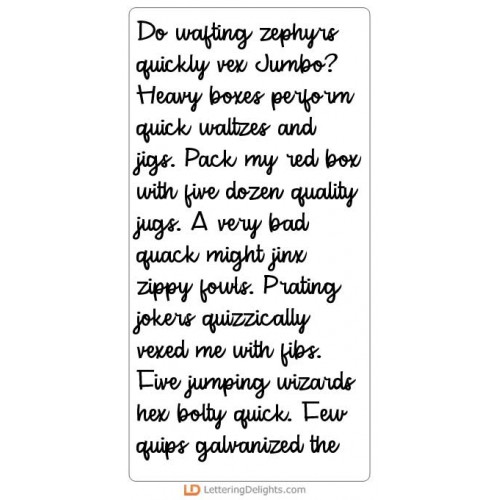 Do wafting zephyrs
quickly vex Jumbo?
Heavy boxes perform
quick waltzes and
jigs. Pack my red box
with five dozen quality
jugs. A very bad
quack might jinx
zippy fowls. Prating
jokers quizzically
vexed me with fibs.
Five jumping wizards
hex bolty quick. Few
quips galvanized the
LD LetteringDelights.com